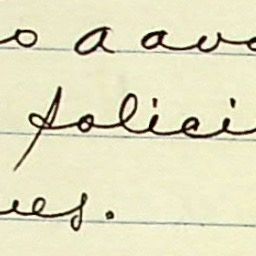 o a avo
policia
ues.